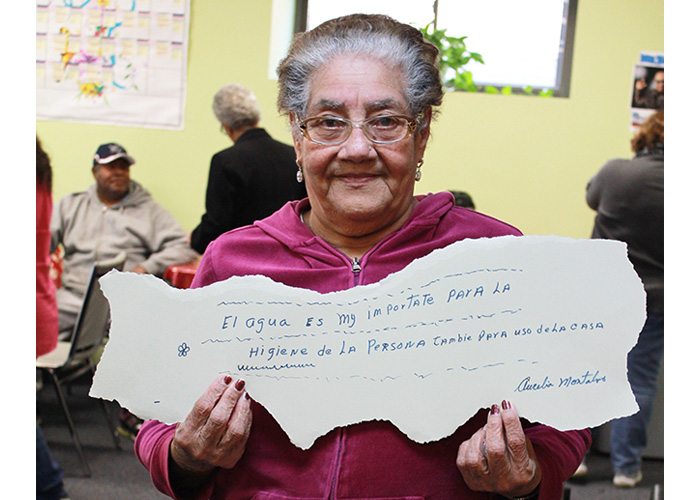 El agua es my importate para la
Higiene de la persona tambie para uso de la casa
Aurelia Montalvo